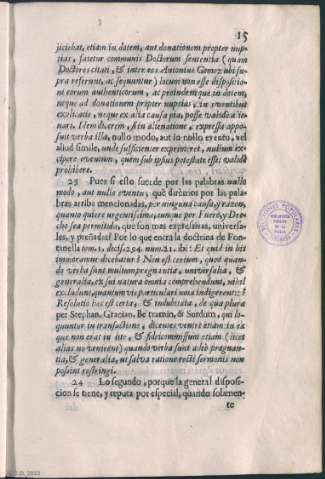 15
jiciebat, etiam in dotem, aut donationem propter nup-
tias, fatetur communis Doctorum sententia (quam
Doctores citati, & inter eos Antonius Gomez ubi su-
pra referunt, ac sequuntur) locum non esse dispositio-
ni eorum authenticorum, ac proinde neque in dotem,
neque ad donationem propter nuptias, in
explicatis, neque ex alia causa pia, posse valido
nari. Idem dicerem, si in alienatione, expressis appo-
suit verba illa, nullo modo, aut in nullo eventu, vel
aliud simile, unde sufficienter exprimeret, nullum ex-
cipere eventum, quem sub ipsius potestate esset valide
prohibere.
23 Pues si esto sucede por las palabras nullo
modo, aut nullo eventu; què dirèmos por las pala-
bras arriba mencionadas, por ninguna causa, y razon,
quanto quiere urgentissima, aunque por Fuero, y Dere-
cho sea permitido, que son mas expressivas, universa-
les, y preñadas? Por lo que entra la doctrina de Fon-
tanella tom. 1. decis. 294. num. 21. ibi: Et quid in his
immoramur docebatur? Nam est certum, quod quan-
do verba sunt multum pregnantia, universalia, &
generalia, et sui natura omnia comprehendunt, nihil
excludunt, quantumvis particulari nota indigerent: &
Resolutio hæc est certa, & indubitata, de qua plura
per Stephan. Gracian. & Surdum, qui lo-
quuntur in transactione, dicentes venire etiam in ea
que non erat in lite, & fideicommissum etiam (licet
aliàs non veniant) quando verba sunt adeò pregnan-
tia, & generalia, ut salva ratione recti sermonis non
possint restringi.
24 Lo segundo, porque la general disposi-
cion se tiene, y reputa por especial, quando solamen-
te